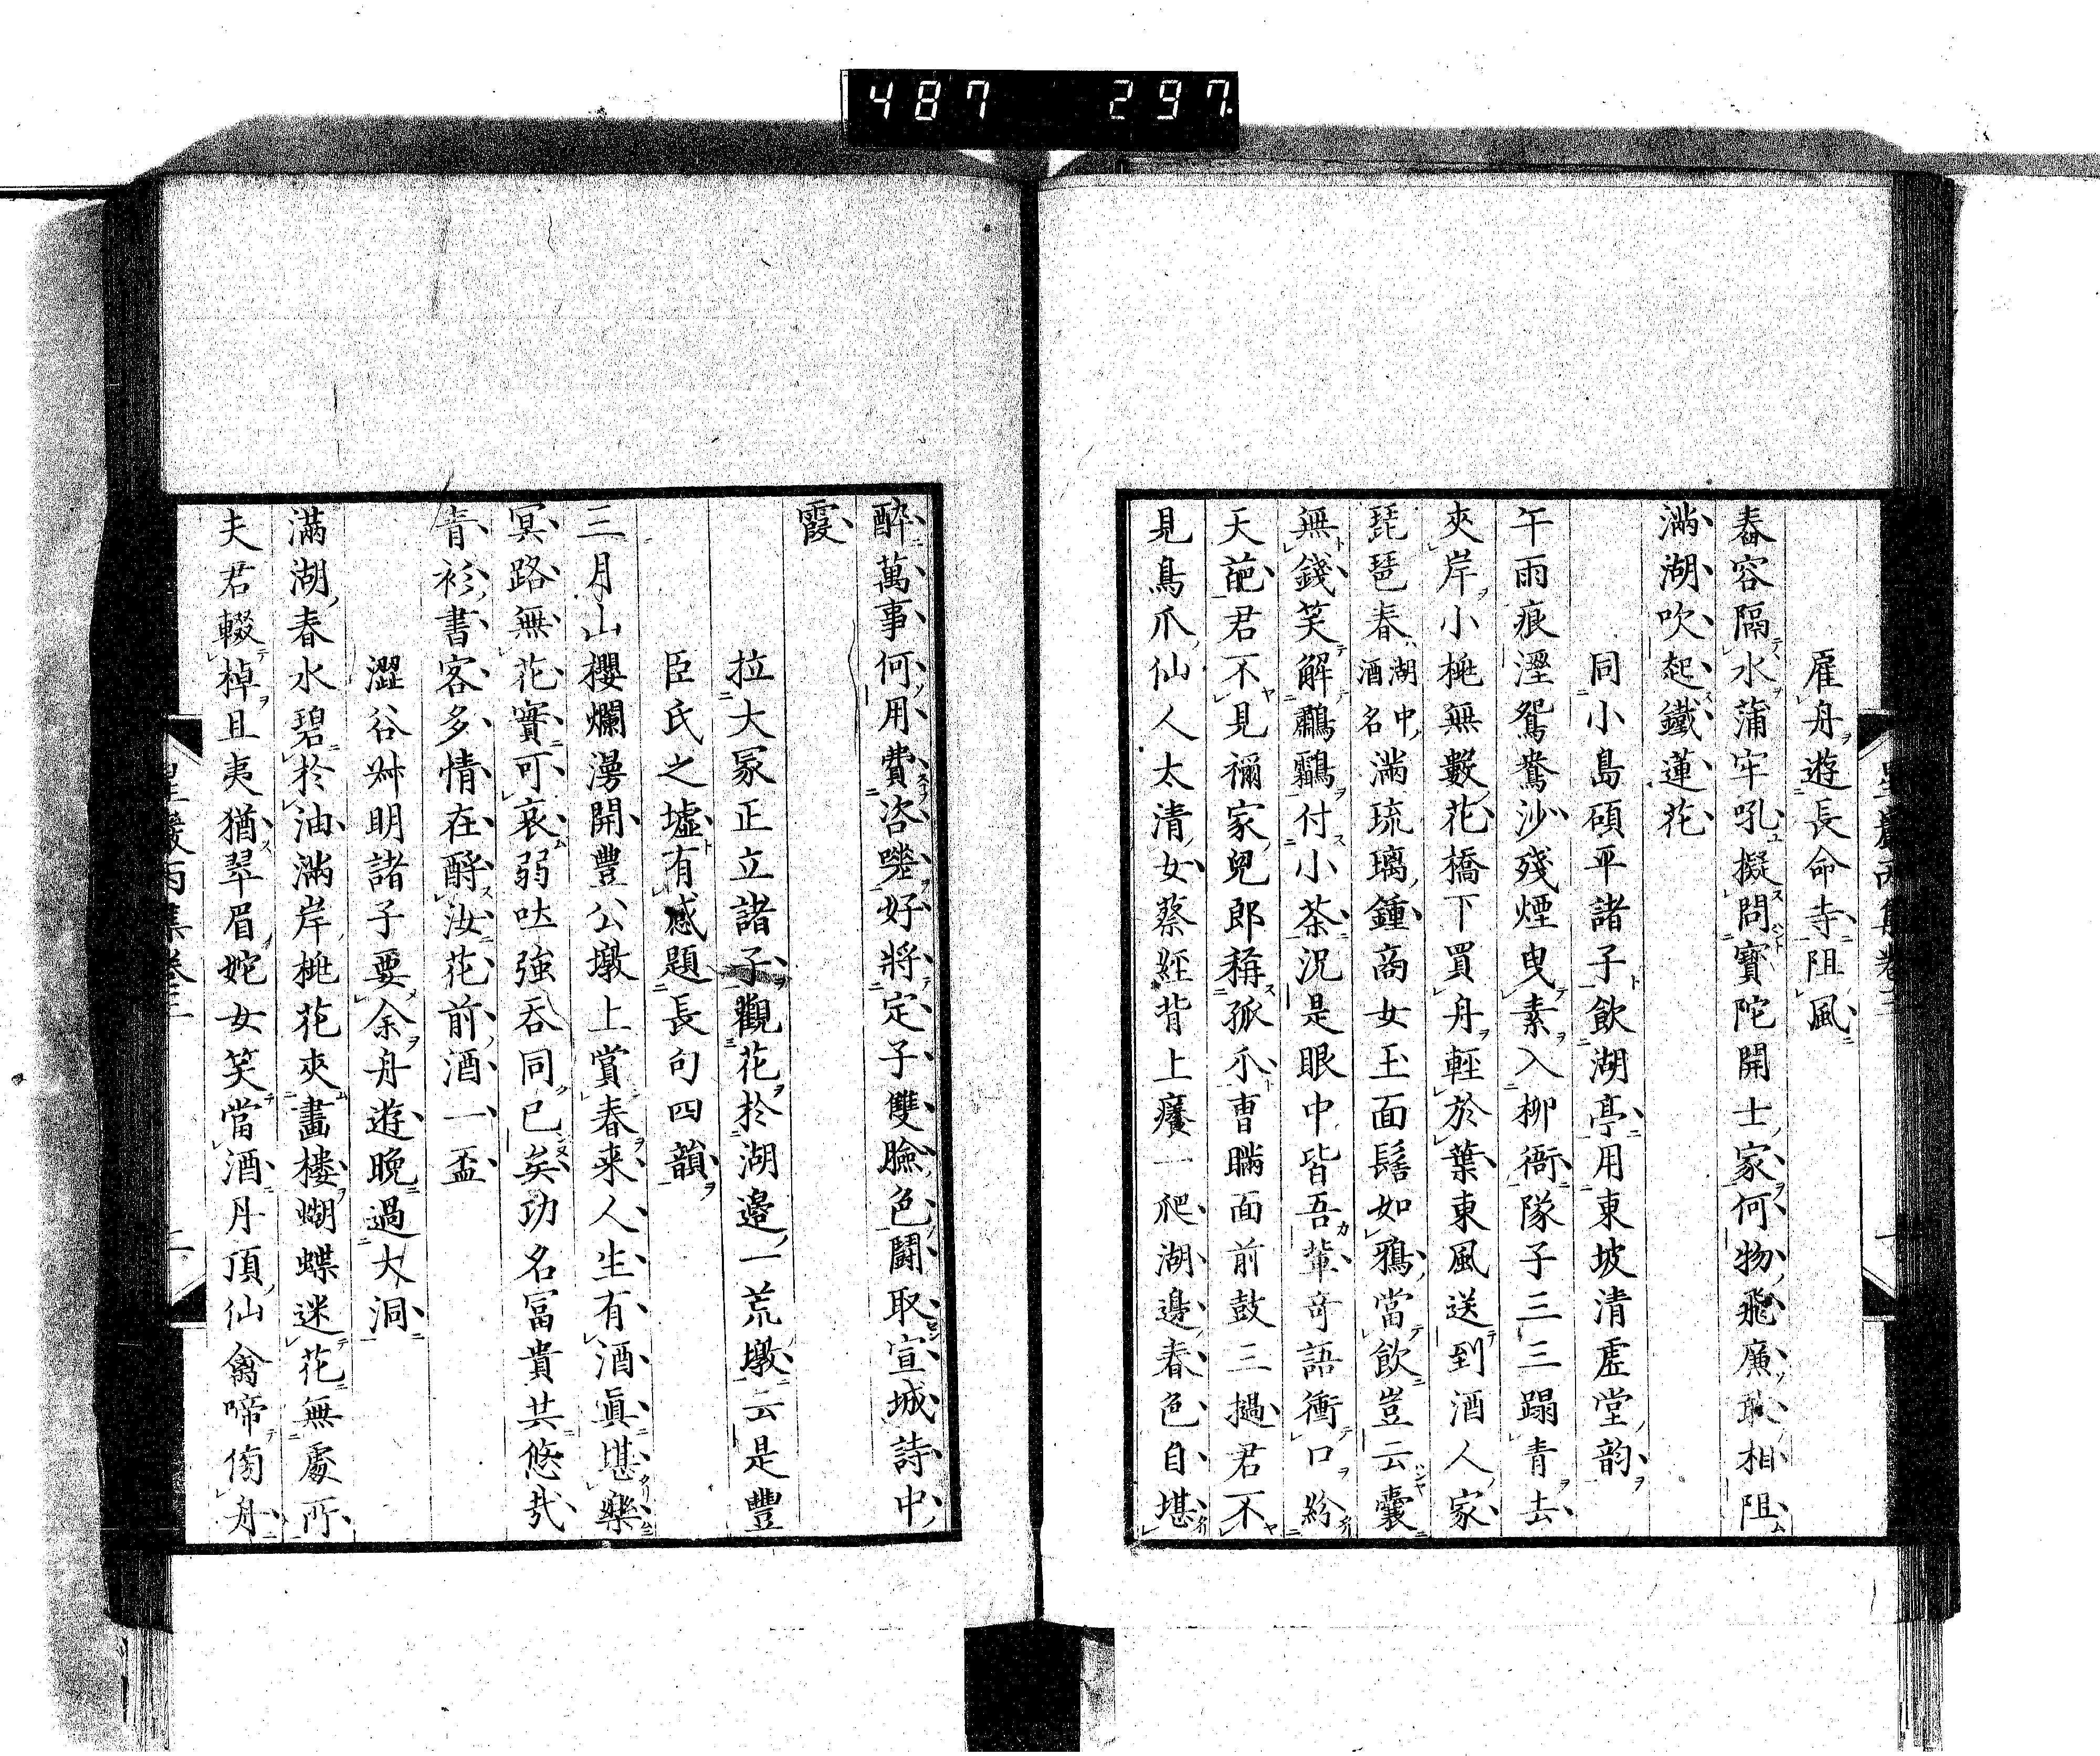 487 297
雇舟遊長命寺阻風
春容隔水蒲牢吼擬問寶陀開士家何物飛廉敢相阻
滿湖吹起鐵蓮花
同小島碩平諸子飲湖亭用東坡清虛堂韵
午雨痕溼鴛鴦沙殘煙曳素入柳衙隊子三三蹋青去
夾岸小桃無數花橋下買舟輕於葉東風送到酒人家
琵琶春湖中酒名滿琉璃鍾商女玉面髻如鴉當飲豈云囊
無錢笑解鸘付小茶況是眼中皆吾輩奇語衝口紛
天葩君不見禰家兒郎稱孤小曹瞞面前鼓三撾君不
見鳥爪仙人太清女蔡經背上癢一爬湖邊春色自堪
醉萬事何用費咨嗟好將定子雙臉色鬪取宣城詩中
霞
拉大冢正立諸子觀花於湖邊一荒墩云是豐
臣氏之墟有感題長句四韻
三月山櫻爛漫開豐公墩上賞春來人生有酒眞堪樂
冥路無花實可哀弱吐強吞同已矣功名富貴共悠哉
青衫書客多情在酹汝花前酒一盃
澀谷舛明諸子要余舟遊晚過大洞
滿湖春水碧於油滿岸桃花夾畫樓蝴蝶迷花無處所
夫君輟棹且夷猶翠眉姹女笑當酒丹頂仙禽啼傍舟